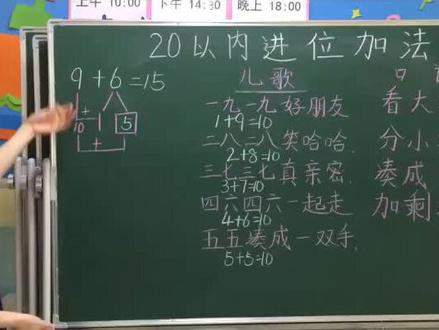 上午 10:00 下午 14:30 晚上 18:00
20以内进位加法
9+6=15
+
10 1 5
+
儿歌
一九一九好朋友
1+9=10
二八二八笑哈哈.
2+8=10
三七三七真亲密.
3+7=10
四六四六一起走
4+6=10
五五凑成一双手.
5+5=10
口
看大
分小
凑成
加剩